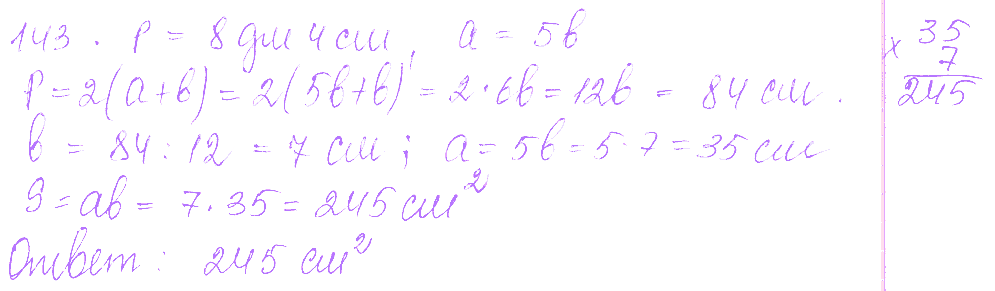 143. P = 8 дм 4 см, a = 5b
P = 2(a+b) = 2(5b+b) = 2·6b = 12b = 84 см.
b = 84 : 12 = 7 см; a = 5b = 5·7 = 35 см
S = ab = 7·35 = 245 см²
Ответ: 245 см²
× 35
7
245